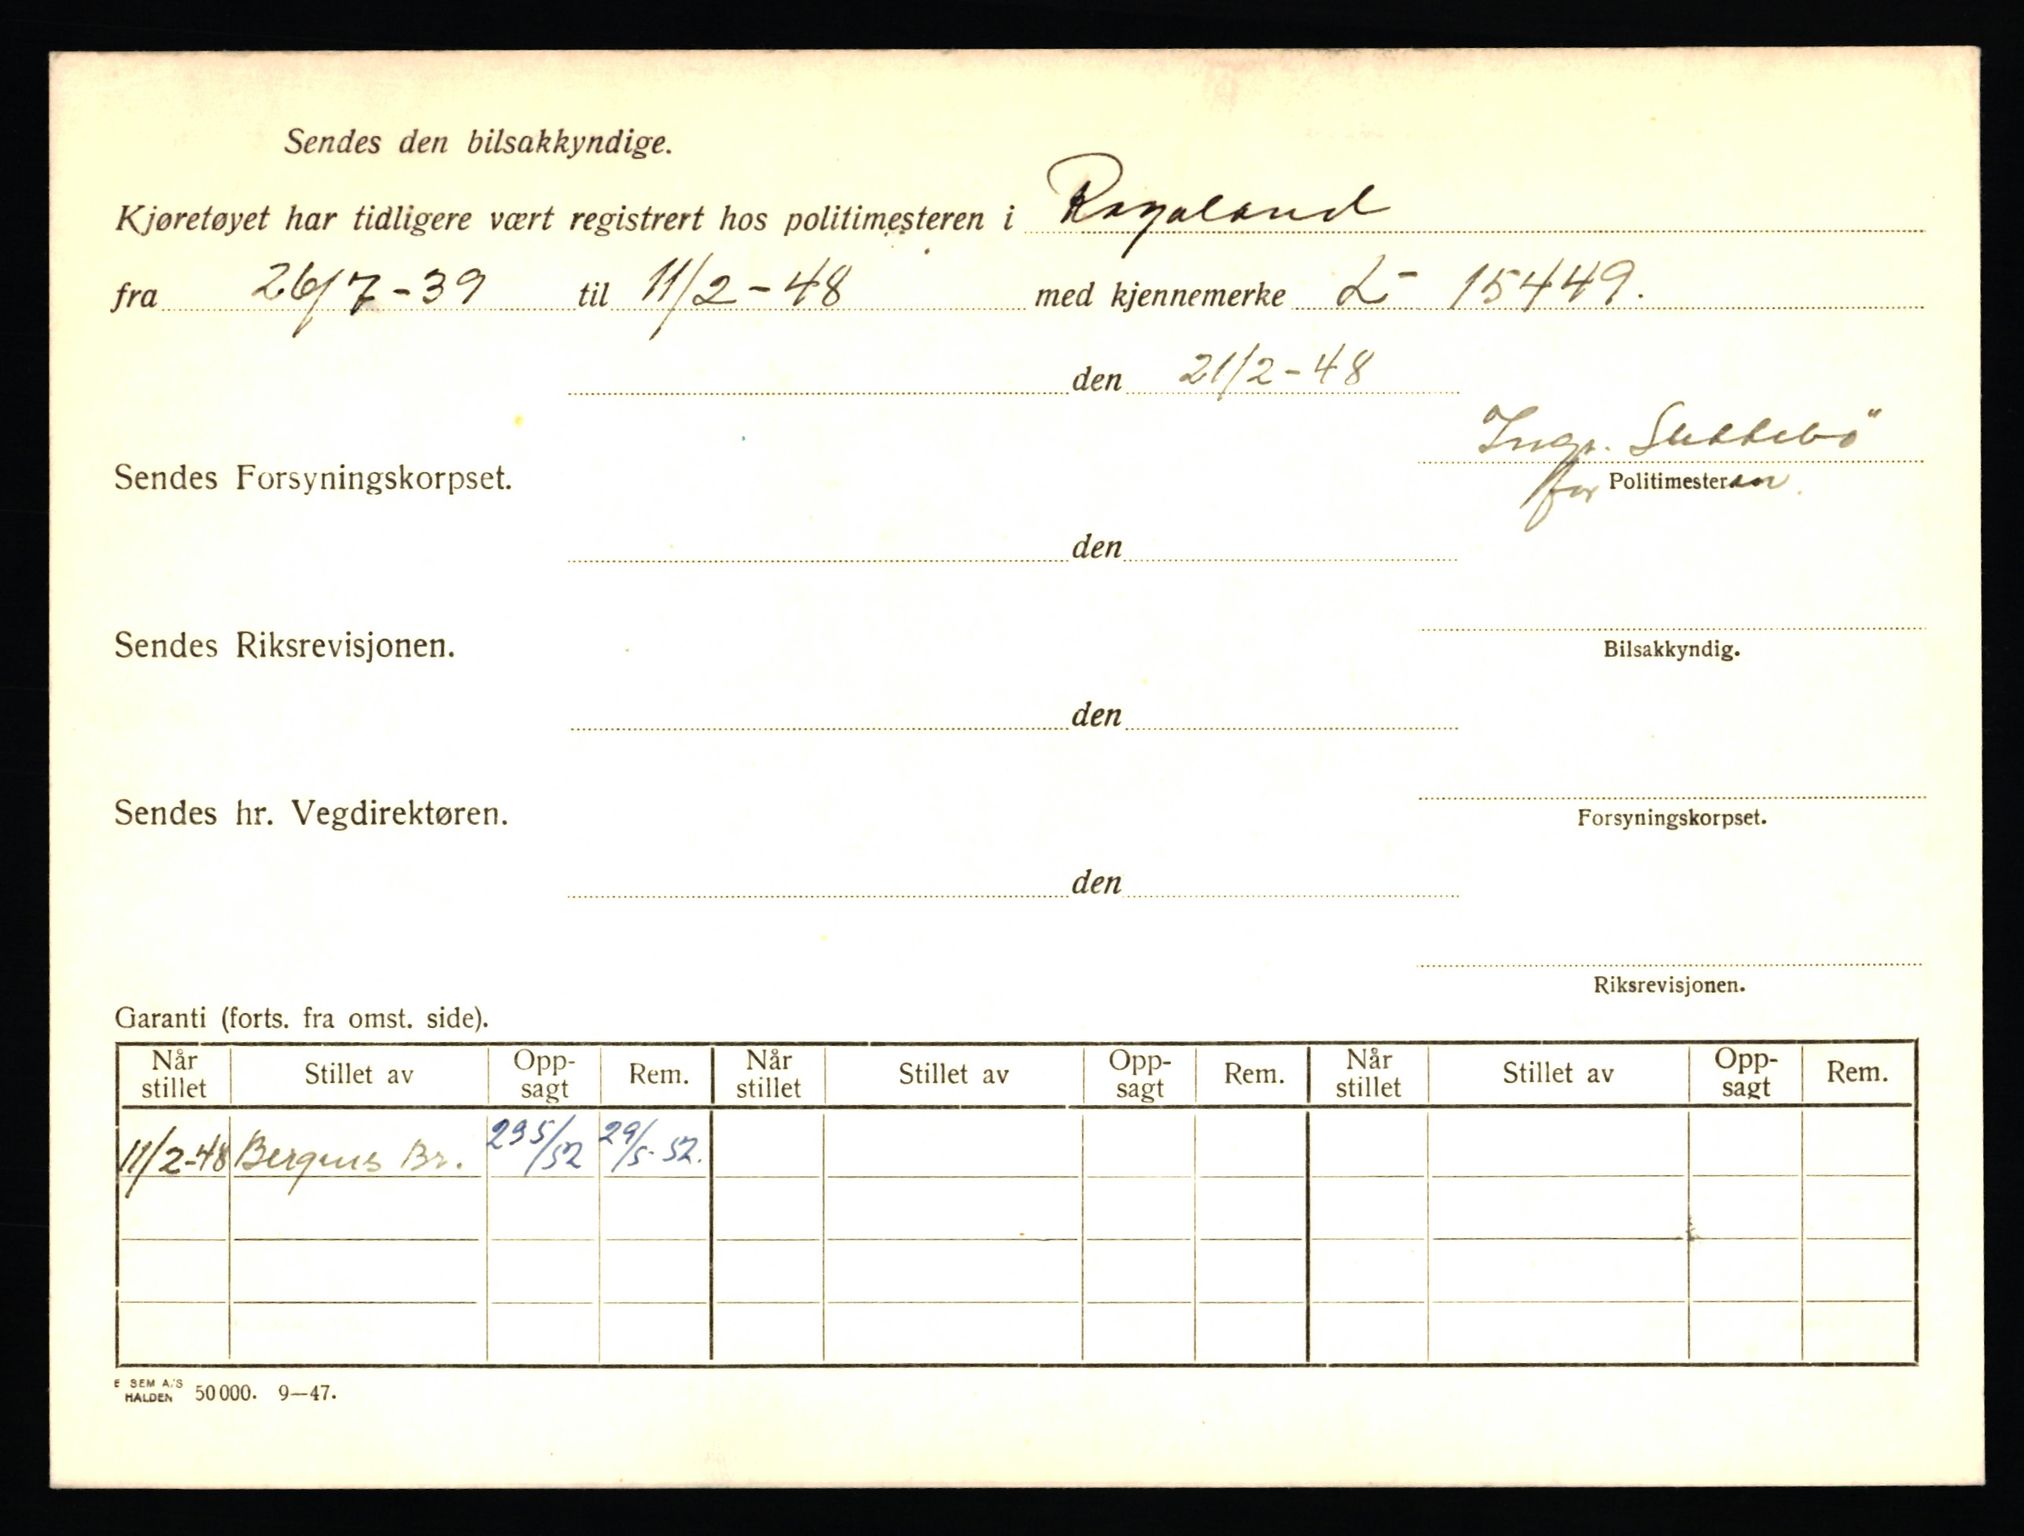 Sendes den bilsakkyndige.
Kjøretøyet har tidligere vært registrert hos politimesteren i Rogaland
fra 26/7-39 til 11/2-48 med kjennemerke L- 15449.
den 21/2-48
Ingr. Slettebö
Sendes Forsyningskorpset.
for Politimesteren.
den
Sendes Riksrevisjonen.
Bilsakkyndig.
den
Sendes hr. Vegdirektøren.
Forsyningskorpset.
den
Riksrevisjonen.
Garanti (forts. fra omst. side).
Når stillet Stillet av Opp-sagt Rem. Når stillet Stillet av Opp-sagt Rem. Når stillet Stillet av Opp-sagt Rem.
11/2-48 Bergens Br. 29/5-52.
E SEM A/S
HALDEN 50000. 9—47.